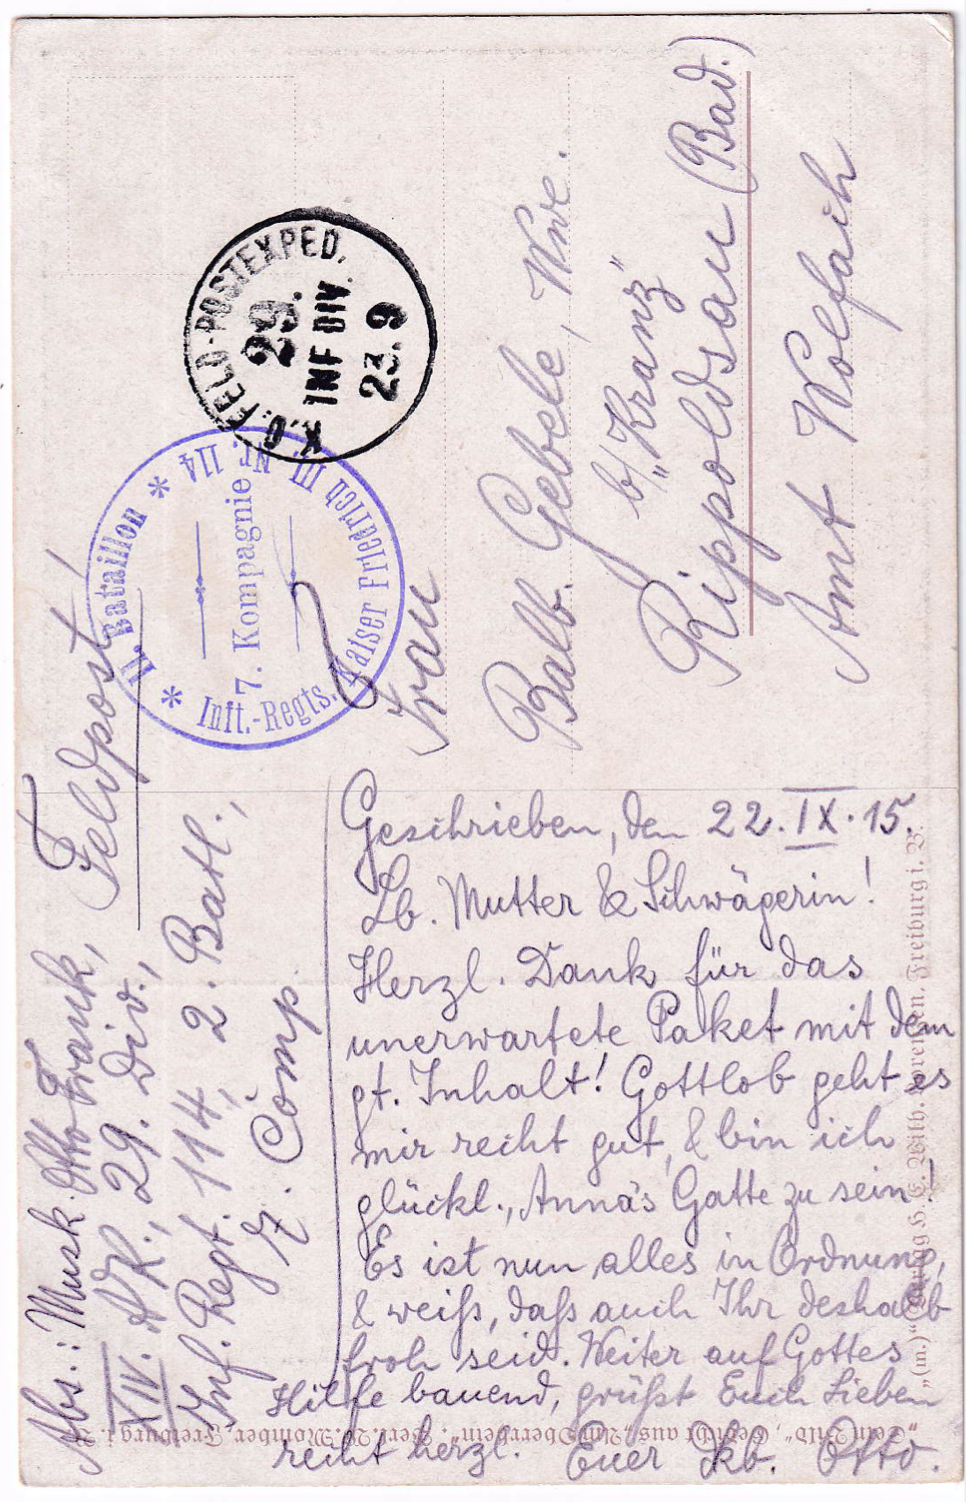 Feldpost!
Abs.: Musk. Otto Frank,
XIV. A. R., 29. Div.,
Inf. Regt. 114, 2. Batl.,
7. Comp.
K.D. FELD-POSTEXPED.
29.
INF DIV.
23.9
II. Bataillon
7. Kompagnie
Inft.-Regts. Kaiser Friedrich III. Nr. 114
Frau
Balb. Gebele, Wwe.
b/ „Kranz“
Rippoldsau (Bad.)
Amt Wolfach
Geschrieben, den 22. IX. 15.
Lb. Mutter & Schwägerin!
Herzl. Dank für das
unerwartete Paket mit dem
gt. Inhalt! Gottlob geht es
mir recht gut, & bin ich
glückl., Anna's Gatte zu sein!
Es ist nun alles in Ordnung,
& weiß, daß auch Ihr deshalb
froh seid. Weiter auf Gottes
Hilfe bauend, grüßt Euch Lieben
recht herzl. Euer lb. Otto.
„Dein Bild“, Gedicht aus „Am Oberrhein“, Verl. Momber, Freiburg i. B.
Freiburg i. B.